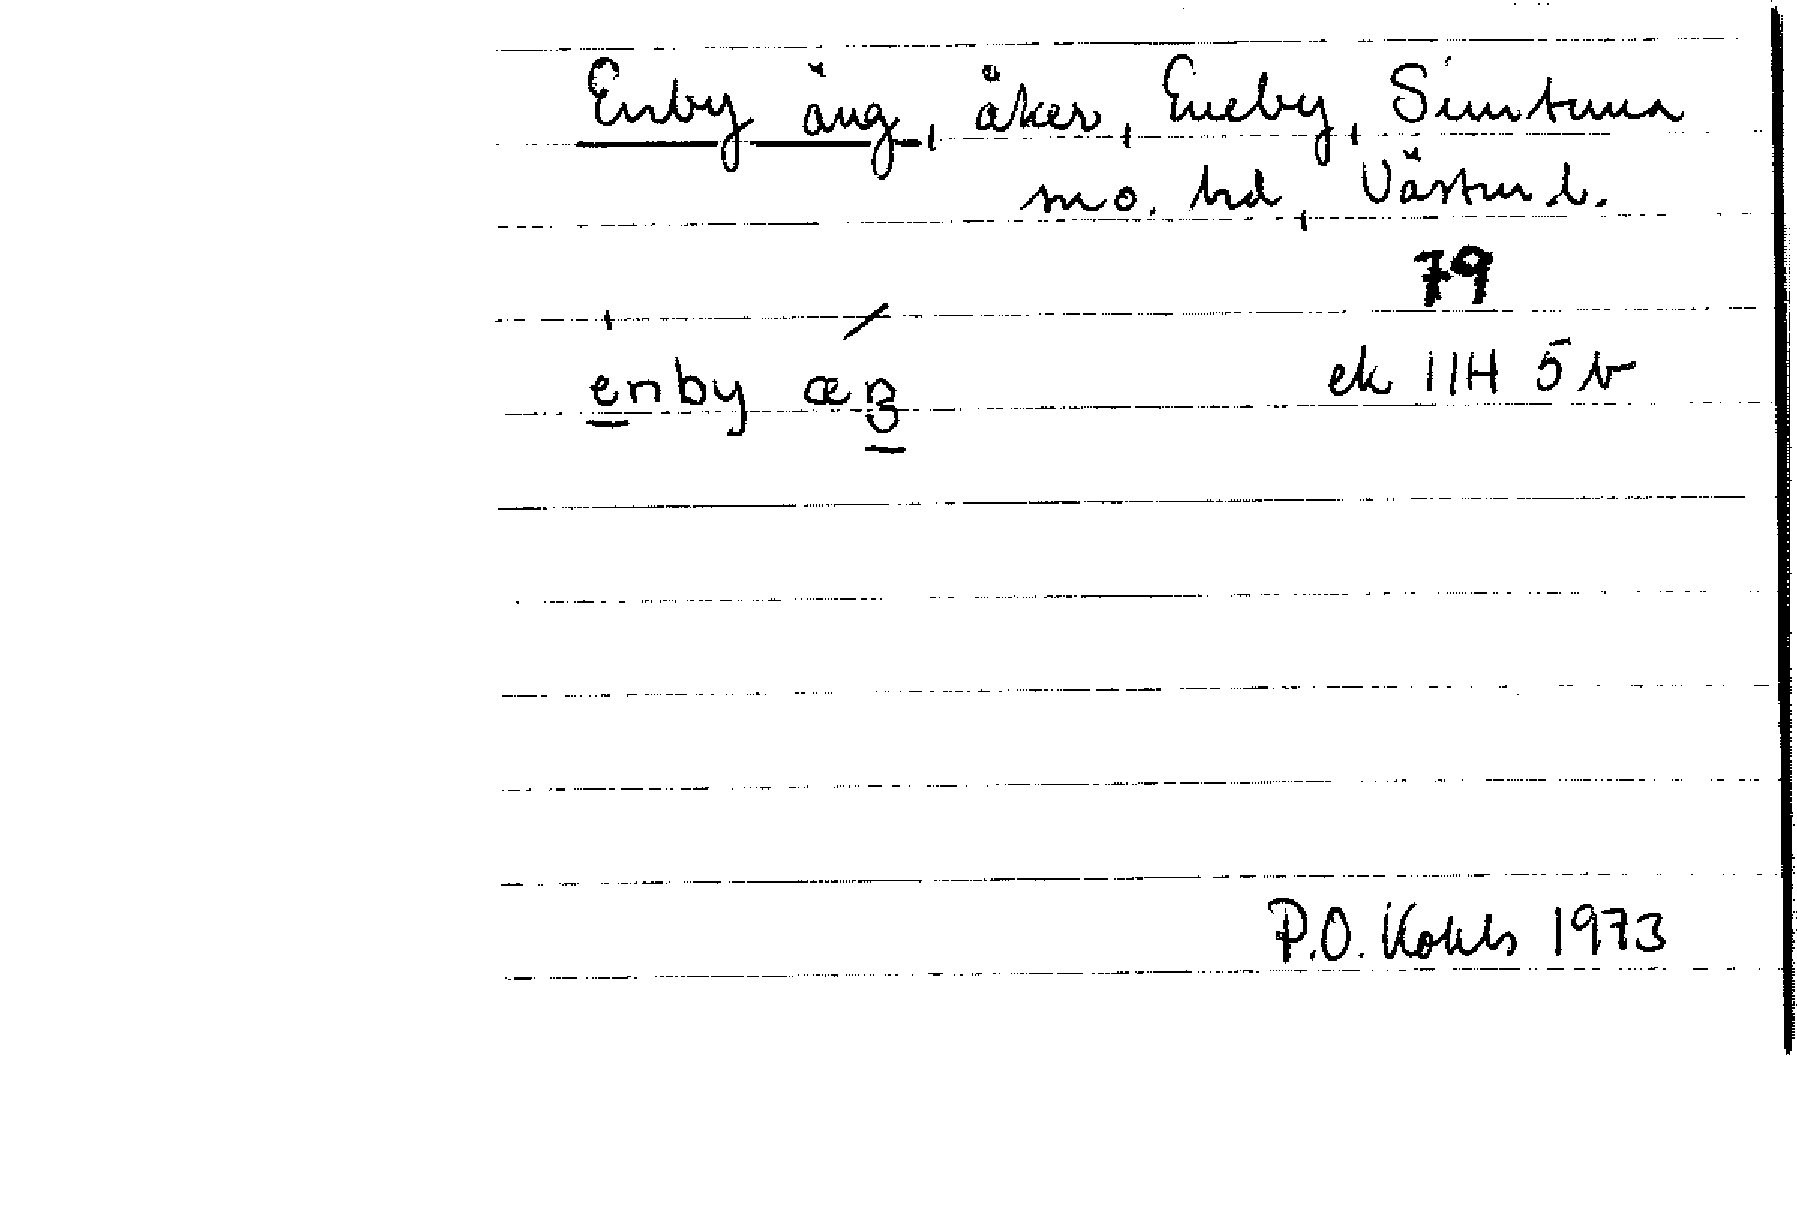 Enby äng, åker, Eneby, Simtuna
sn o. hd, Västm l.
79
enby æŋ
ek 11H 5b
P.O. Kohls 1973